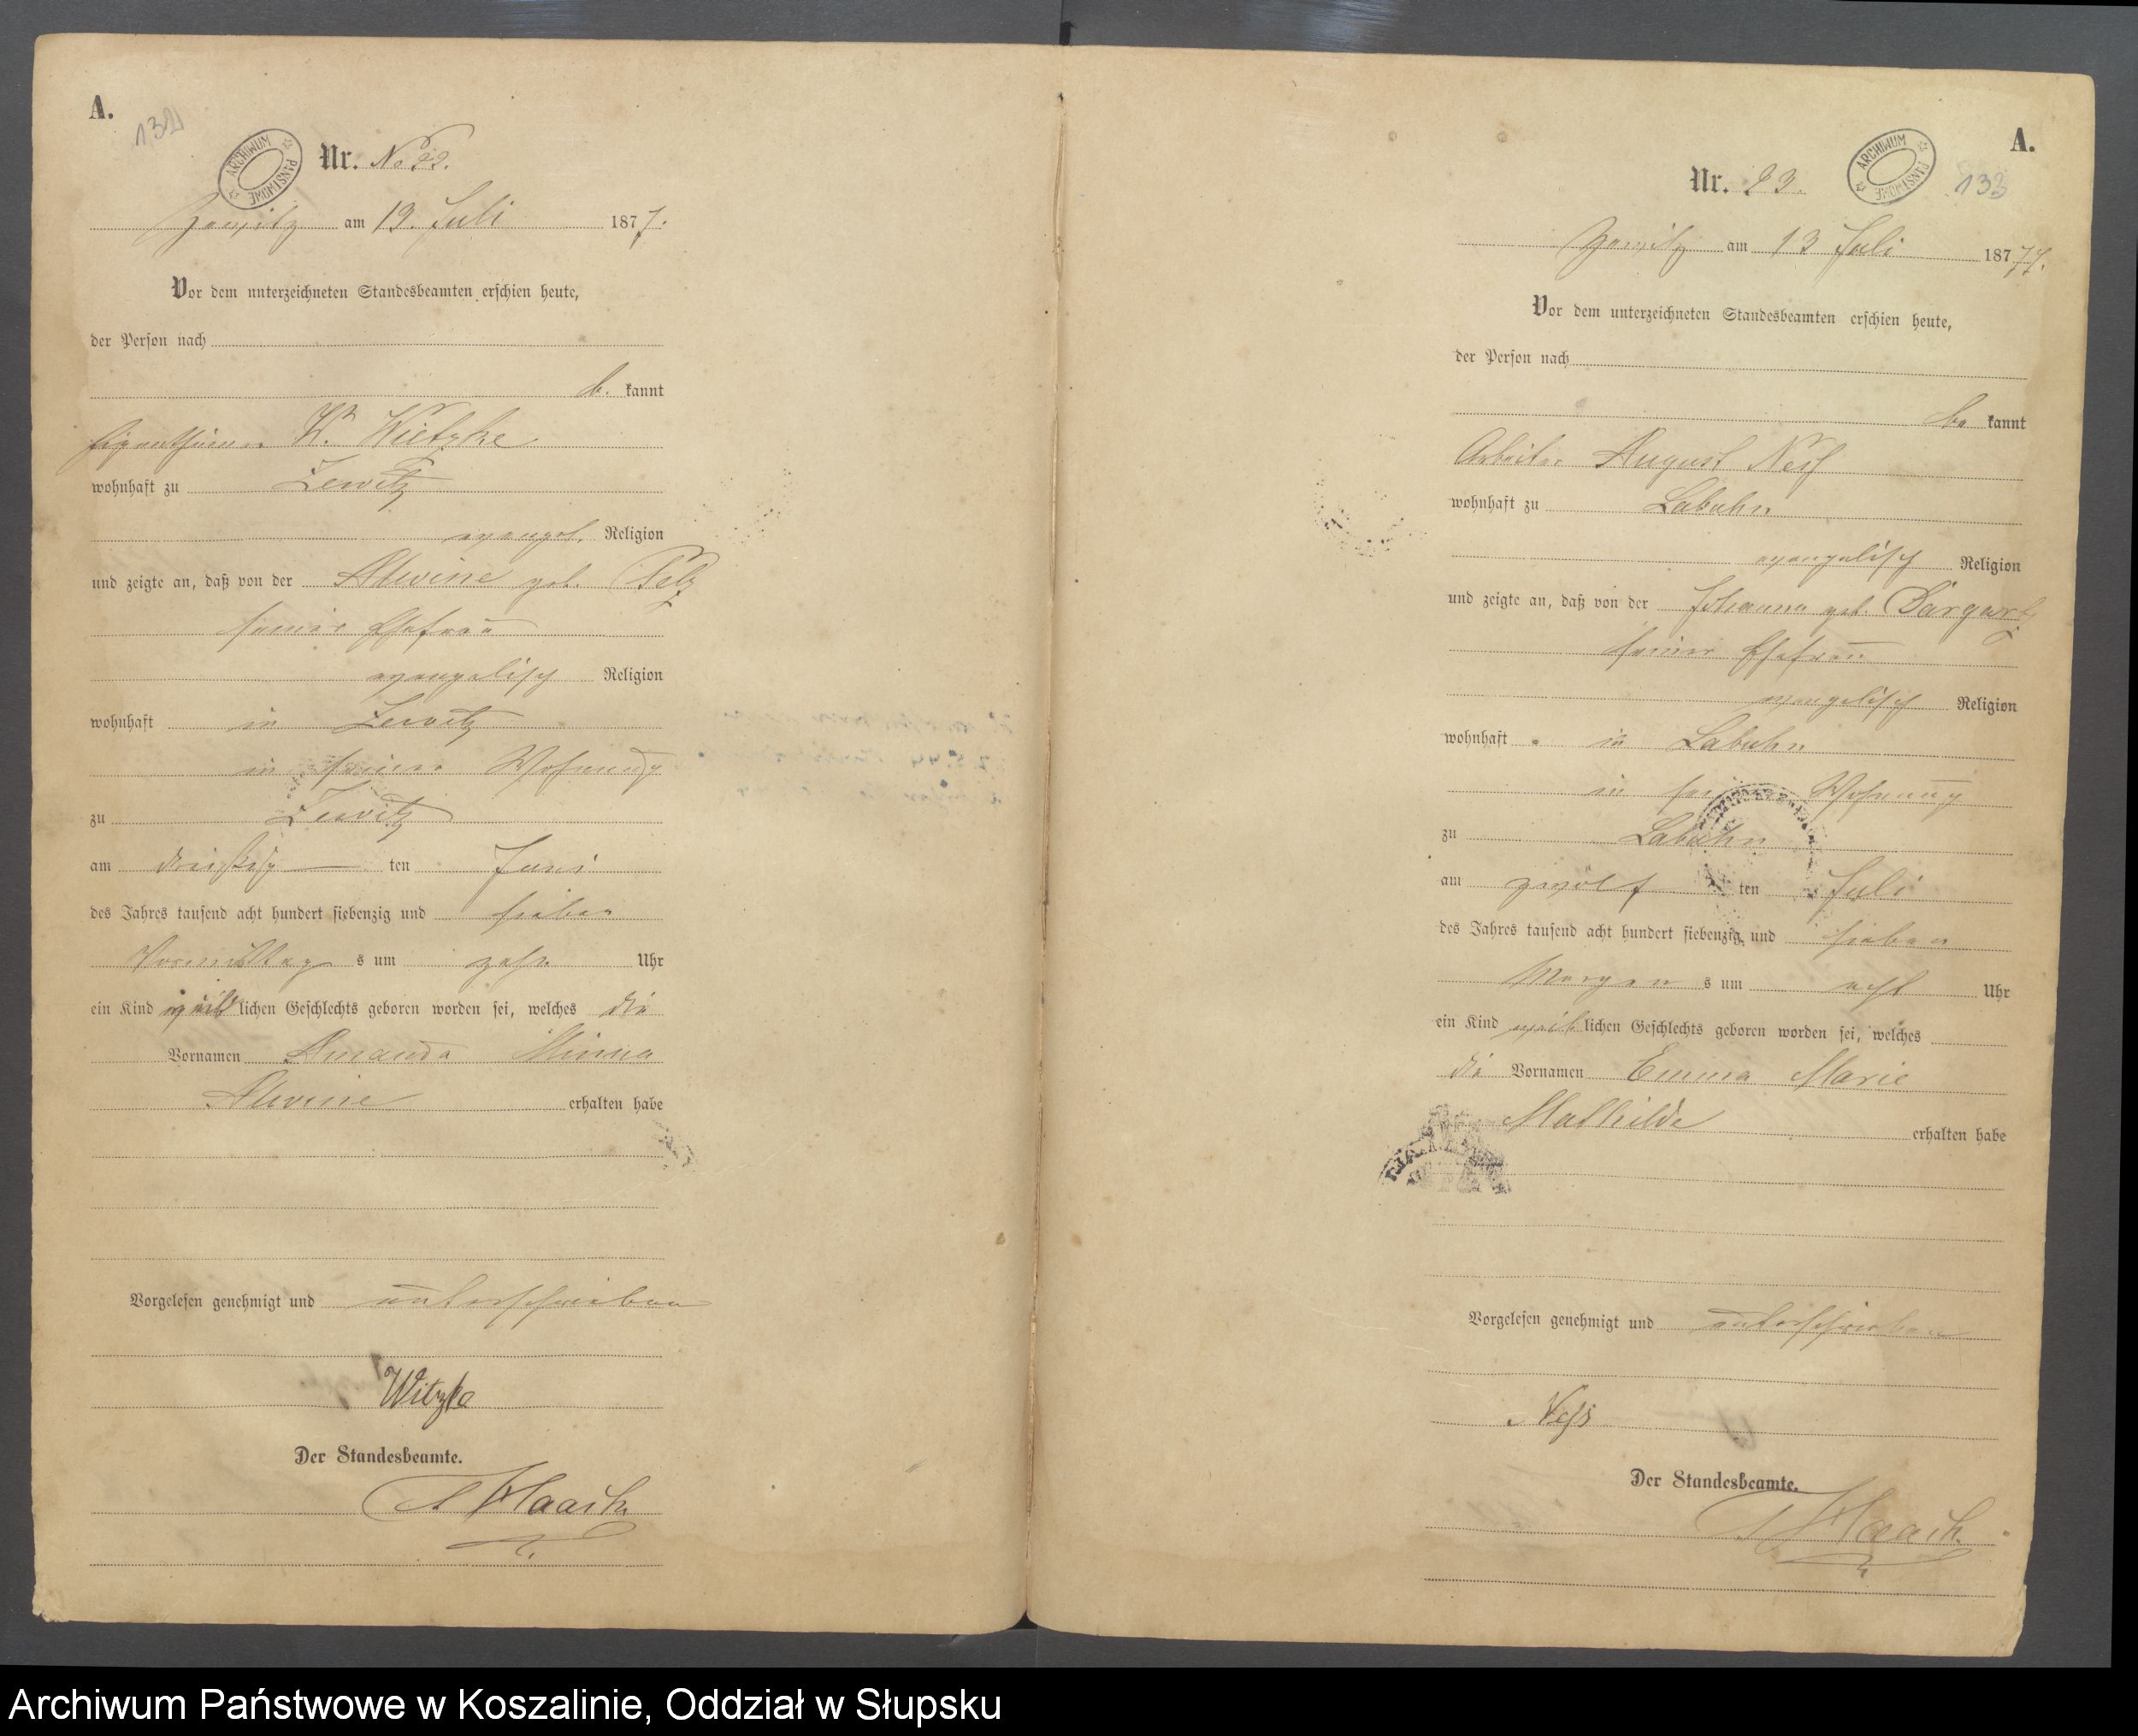 A.
132
ARCHIWUM PAŃSTWOWE
Nr. No 22.
am 13. Juli 1877.
Vor dem unterzeichneten Standesbeamten erschien heute,
der Person nach
b. kannt
Eigenthümer W. Wietzke
wohnhaft zu Zewitz
evangel. Religion
und zeigte an, daß von der Alwine geb. Pelz
seiner Ehefrau
evangelisch Religion
wohnhaft in Zewitz
in seiner Wohnung
zu Zewitz
am dreißig ten Juni
des Jahres tausend acht hundert siebenzig und sieben
Vormittag s um zehn Uhr
ein Kind weiblichen Geschlechts geboren worden sei, welches die
Vornamen Amanda Minna
Alwine erhalten habe
Vorgelesen genehmigt und unterschrieben
Witzke
Der Standesbeamte.
Haack
A.
ARCHIWUM PAŃSTWOWE
Nr. 23.
133
am 13 Juli 1877.
Vor dem unterzeichneten Standesbeamten erschien heute,
der Person nach
be kannt
Arbeiter August
wohnhaft zu Labuhn
evangelisch Religion
und zeigte an, daß von der Johanna geb. Dargatz
seiner Ehefrau
evangelisch Religion
wohnhaft in Labuhn
in seiner Wohnung
zu Labuhn
am zwölf ten Juli
des Jahres tausend acht hundert siebenzig und sieben
Morgen s um acht Uhr
ein Kind weiblichen Geschlechts geboren worden sei, welches
die Vornamen Emma Marie
Mathilde erhalten habe
Vorgelesen genehmigt und unterschrieben
Der Standesbeamte.
Haack
Archiwum Państwowe w Koszalinie, Oddział w Słupsku